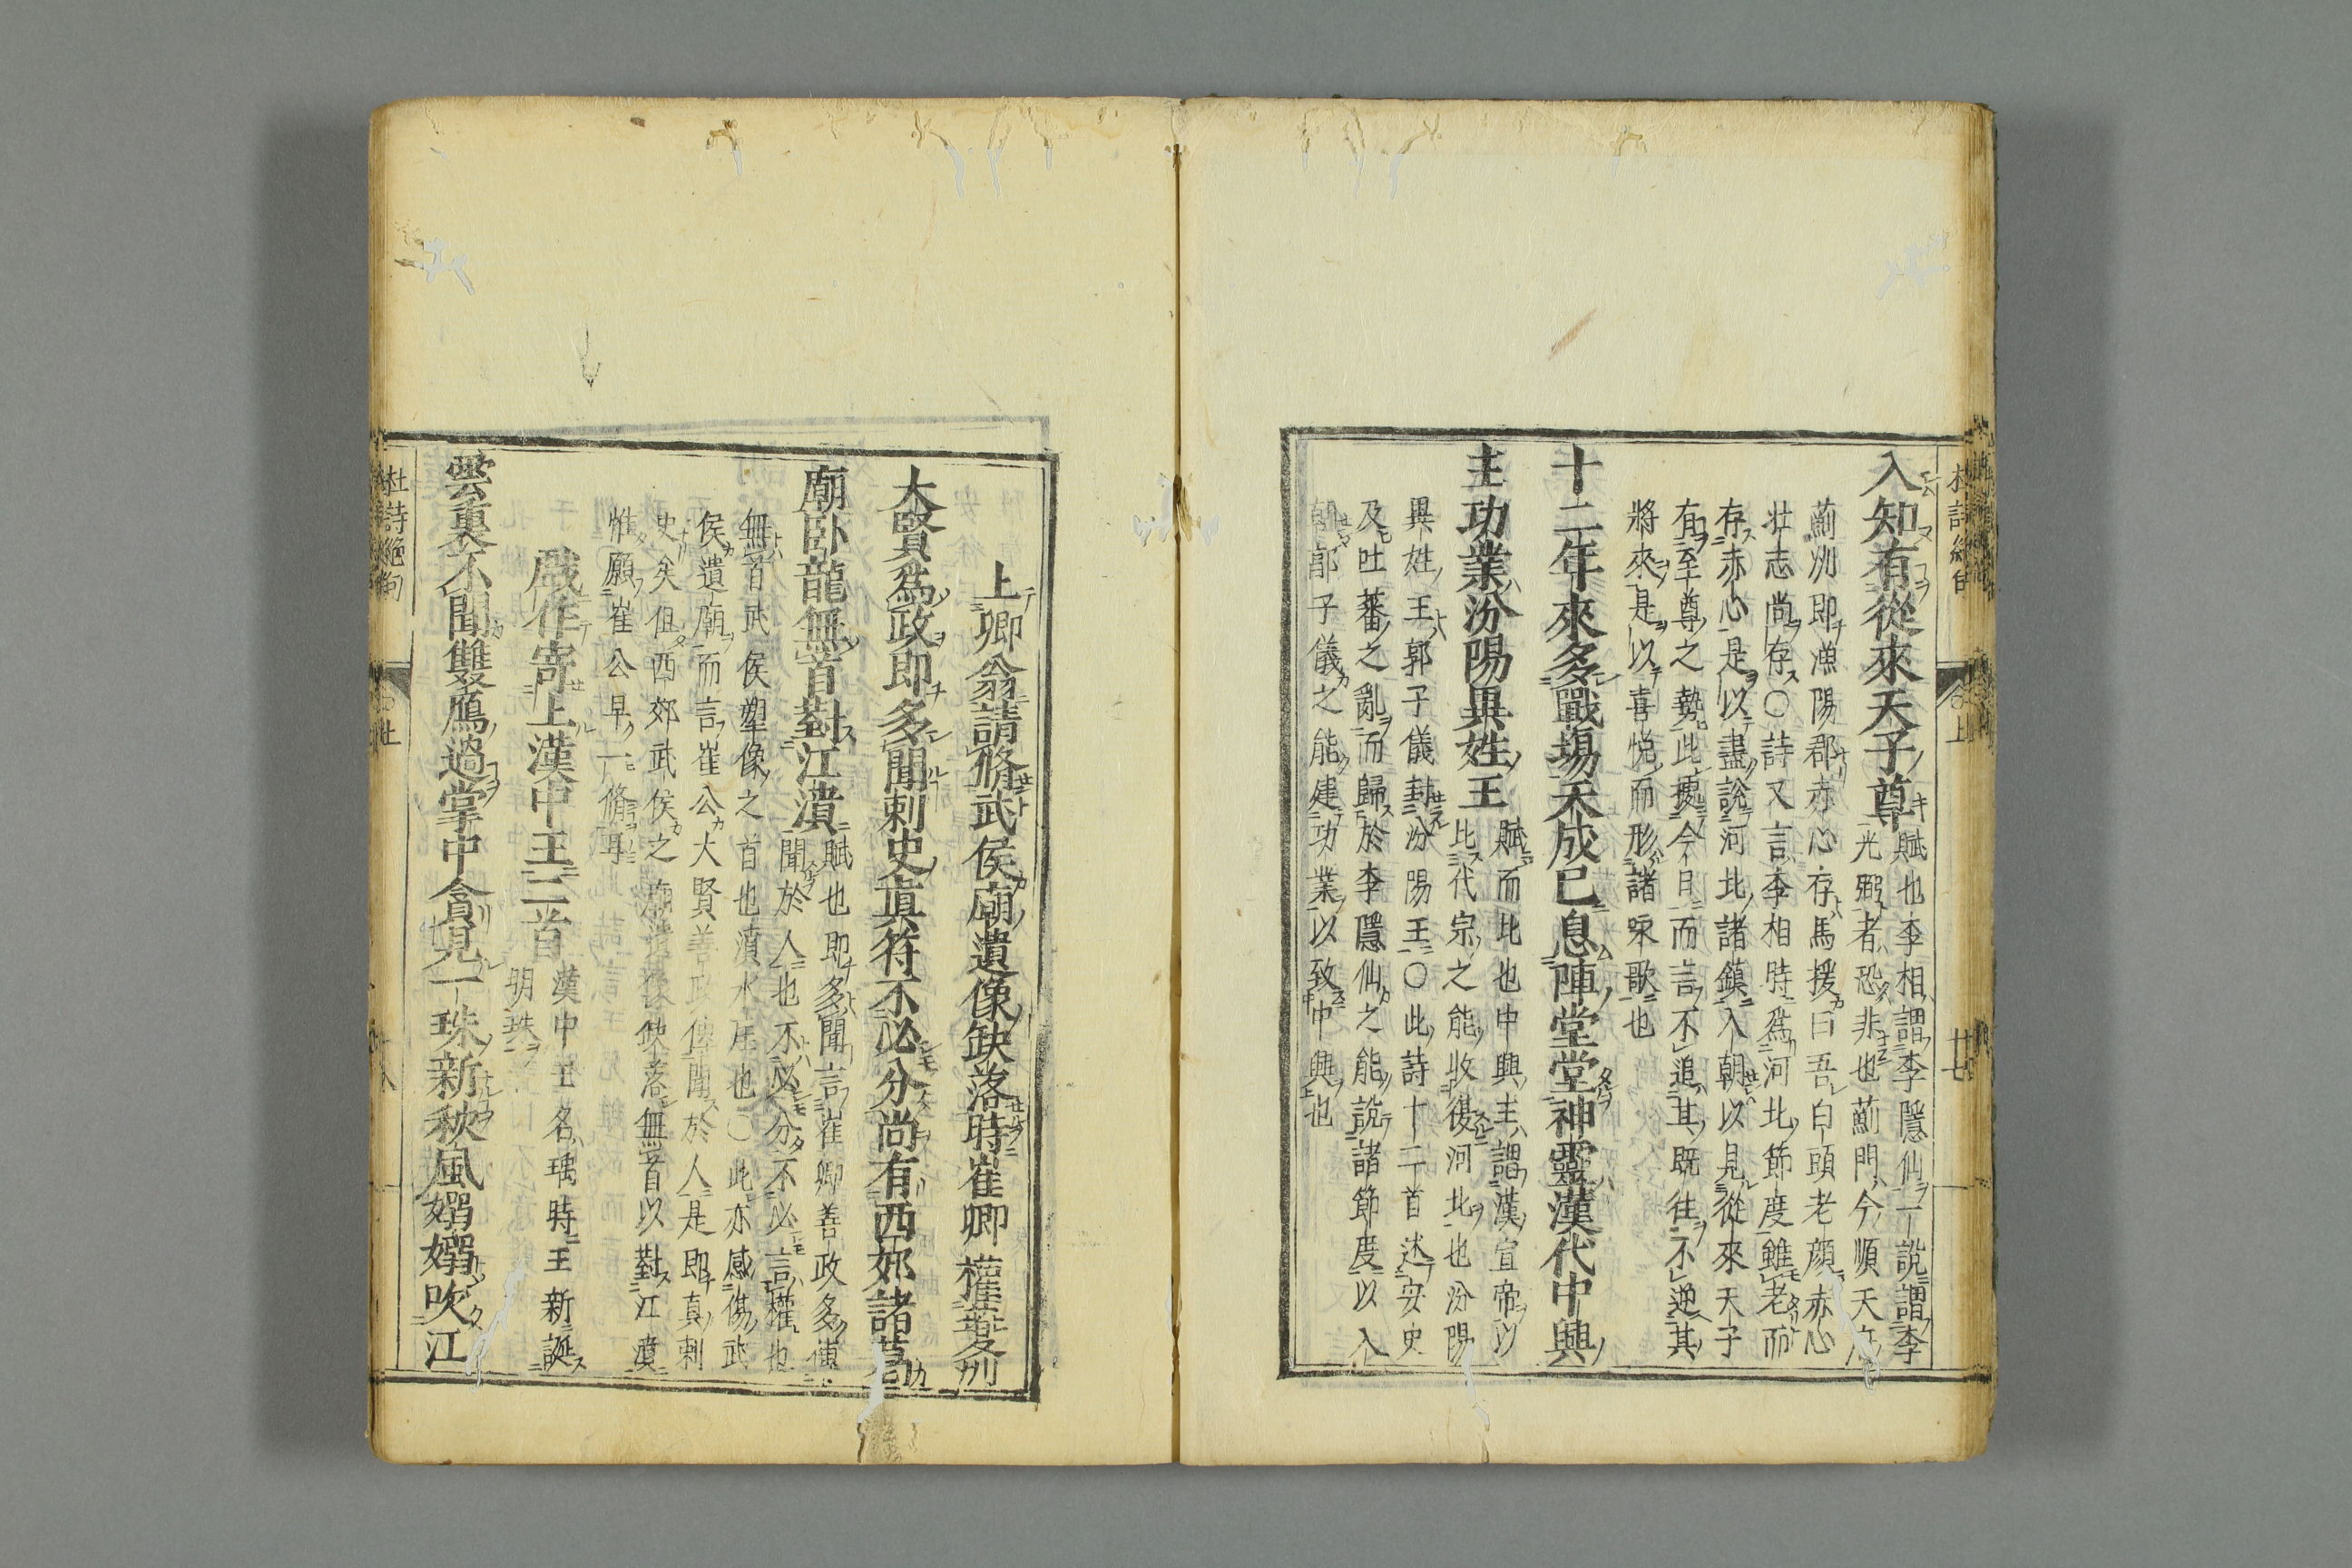 入知有從來天子尊 賦也李相謂李隱仙一說謂李
光弼者恐非也薊門今順天府
薊州即漁陽郡赤心存馬援曰吾白頭老顔赤心
壮志尚存○詩又言李相時爲河北節度雖老而
存赤心是以盡說河北諸鎮入朝以見從來天子
有至尊之勢此處今日而言不追其既往不逆其
將來是以喜悅而形諸咏歌也
十二年來多戰場天威已息陣堂堂神靈漢代中興
主功業汾陽異姓王 賦而比也中興主謂漢宣帝以
比代宗之能收復河北也汾陽
異姓王郭子儀封汾陽王○此詩十二首述安史
及吐蕃之亂而歸於李隱仙之能說諸節度以入
朝郭子儀之能建功業以致中興也
杜詩絶句 上 廿七
上卿翁請脩武侯廟遺像缺落時崔卿權夔州
大賢爲政即多聞刺史眞符不必分尚有西郊諸葛
廟卧龍無首對江濆 賦也即多聞言崔卿善政多傳
聞於人也不必分不必言權也
無首武侯塑像之首也濆水厓也○此亦感傷武
侯遺廟而言崔公大賢善政傳聞於人是即真刺
史矣但西郊武侯之廟遺像缺落無首以對江濆
惟願崔公早一脩耳
戲作寄上漢中王二首 漢中王名瑀時王新誕
明珠
雲裏不聞雙鴈過掌中貪見一珠新秋風嫋嫋吹江
杜詩絶句 上